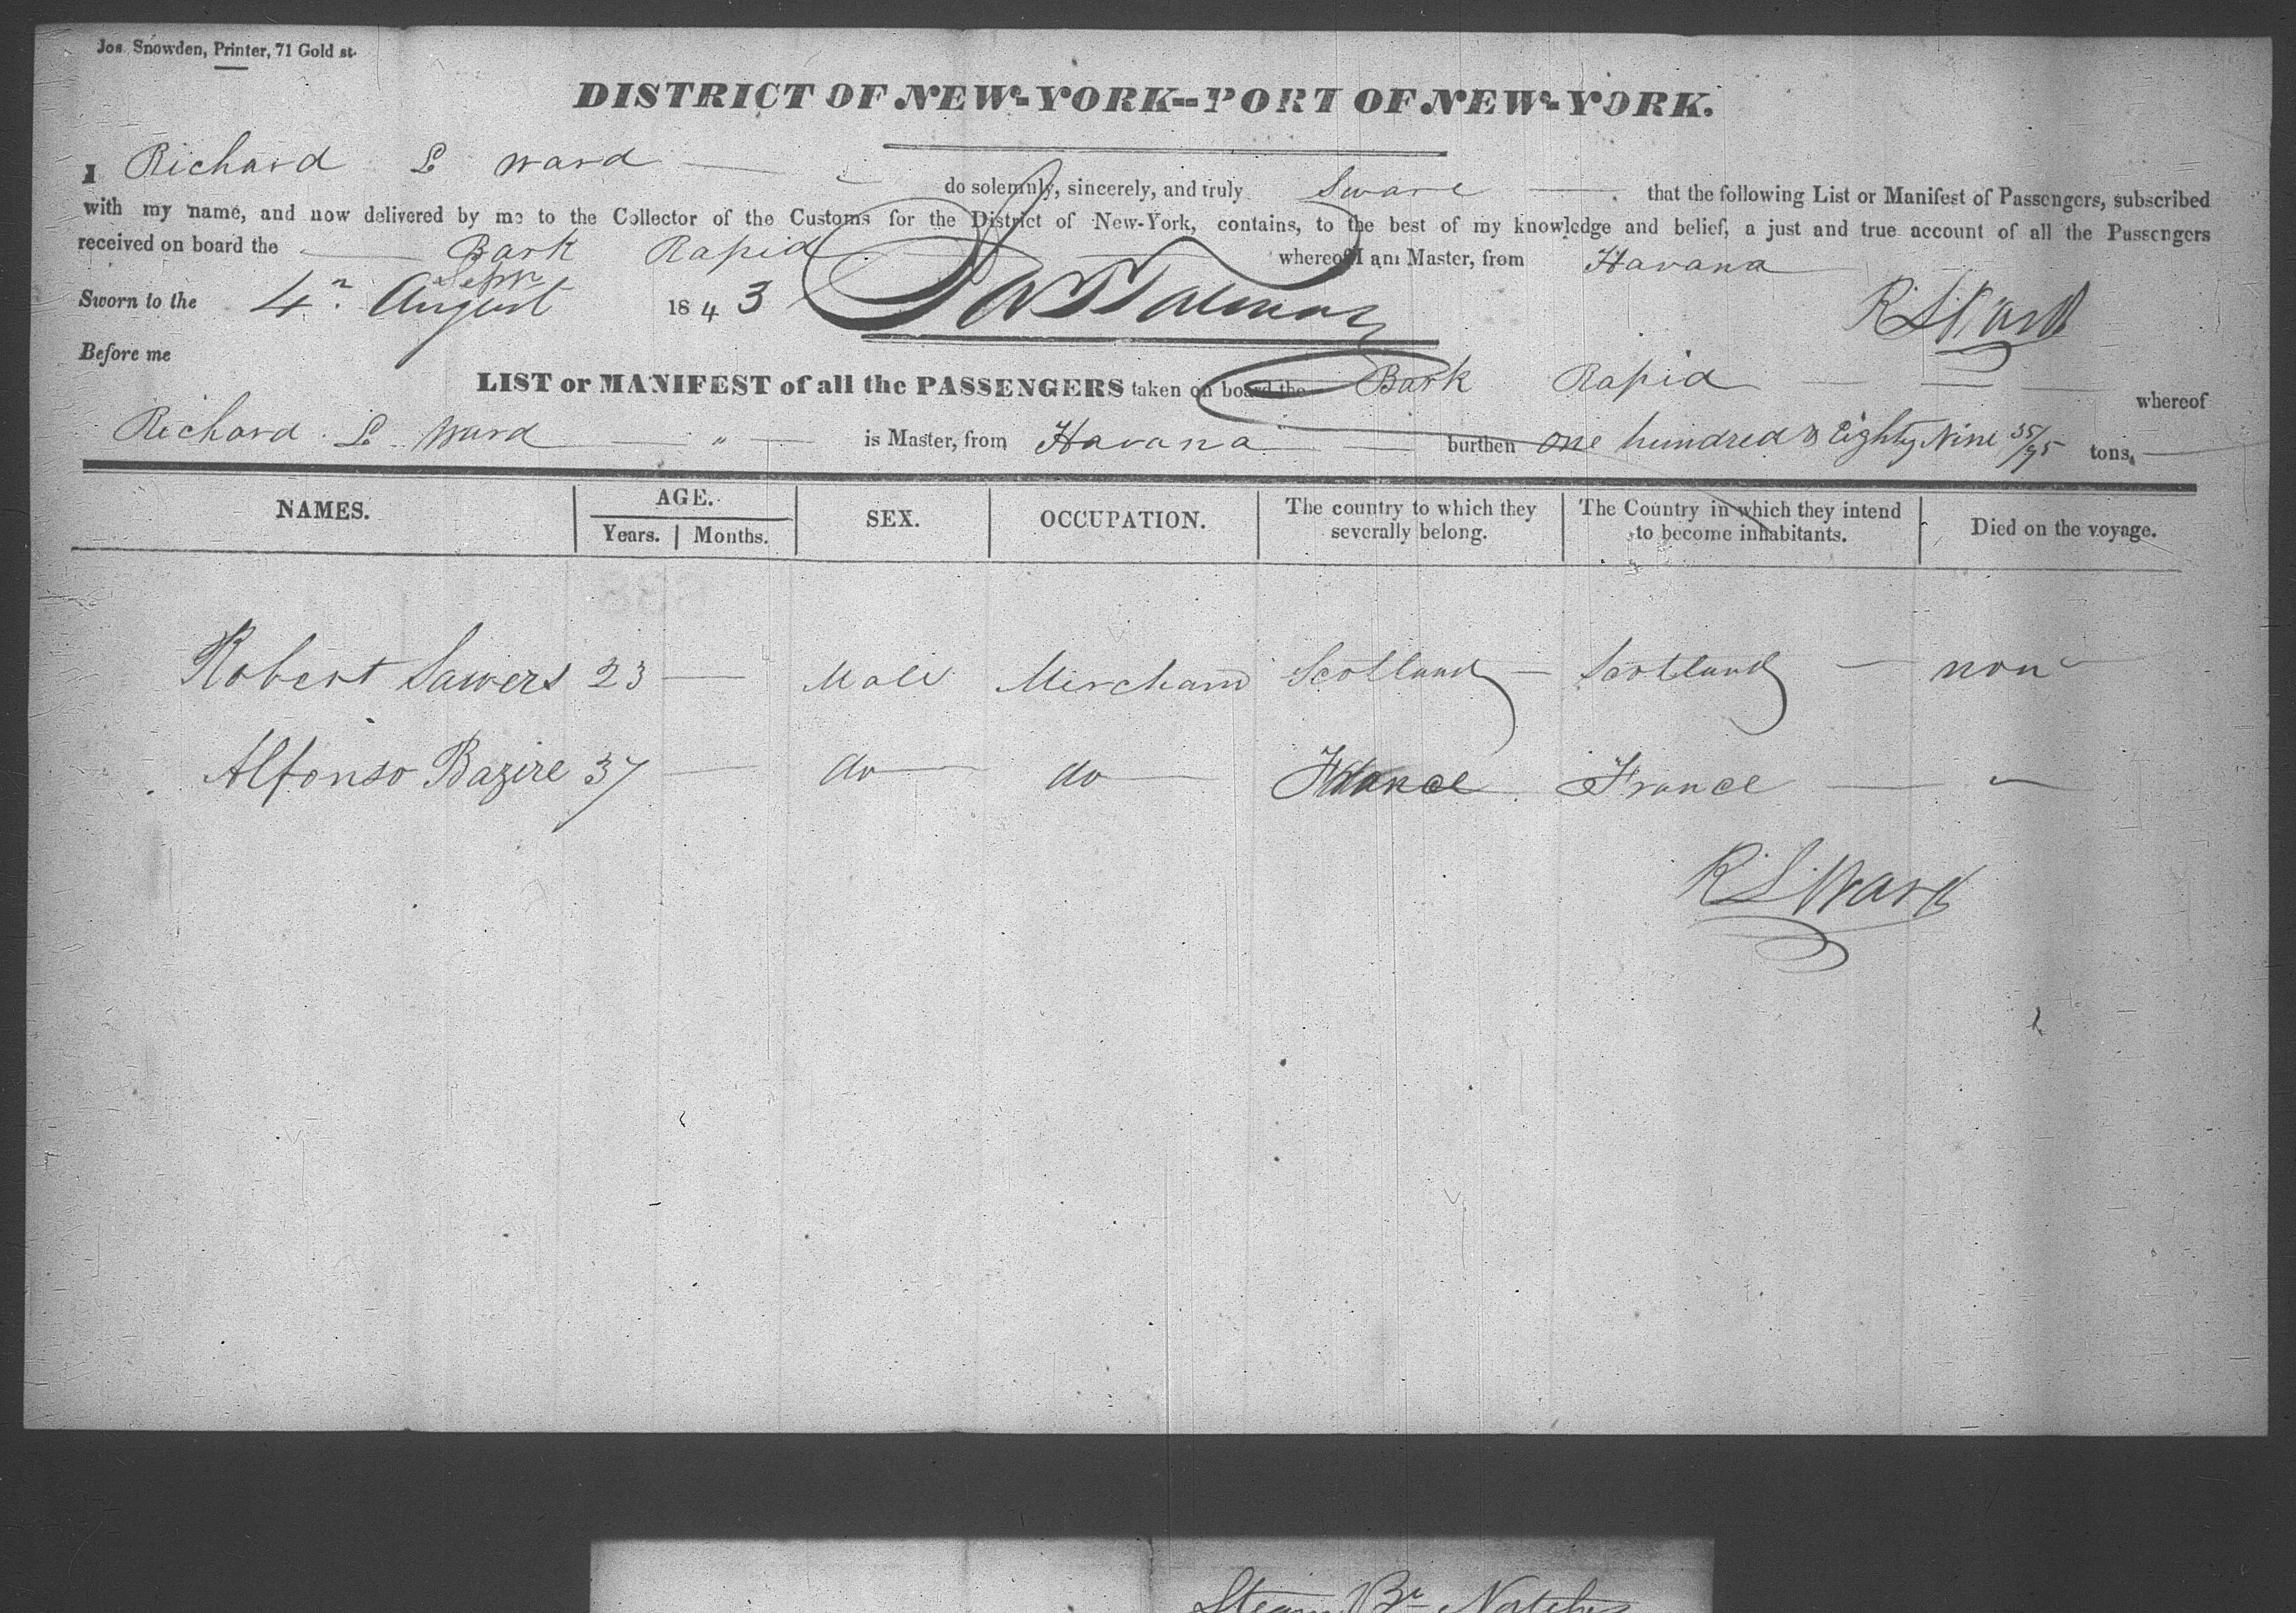 Jos. Snowden, Printer, 71 Gold st.
DISTRICT OF NEW-YORK--PORT OF NEW-YORK.
I Richard L Ward do solemnly, sincerely, and truly Sware that the following List or Manifest of Passengers, subscribed
with my name, and now delivered by me to the Collector of the Customs for the District of New-York, contains, to the best of my knowledge and belief, a just and true account of all the Passengers
received on board the Bark Rapid whereof I am Master, from Havana
Sepr
Sworn to the 4 August 1843 R L Ward
Before me
LIST or MANIFEST of all the PASSENGERS taken on board the Bark Rapid whereof
Richard L Ward " is Master, from Havana burthen one hundred & Eighty Nine 35/95 tons,
NAMES. AGE. SEX. OCCUPATION. The country to which they severally belong. The Country in which they intend to become inhabitants. Died on the voyage.
Years. Months.
Robert Sawers 23 Male Mircham Scotland Scotland non
Alfonso Bazire 37 do do France France
R L Ward
Steam Bt Natchez